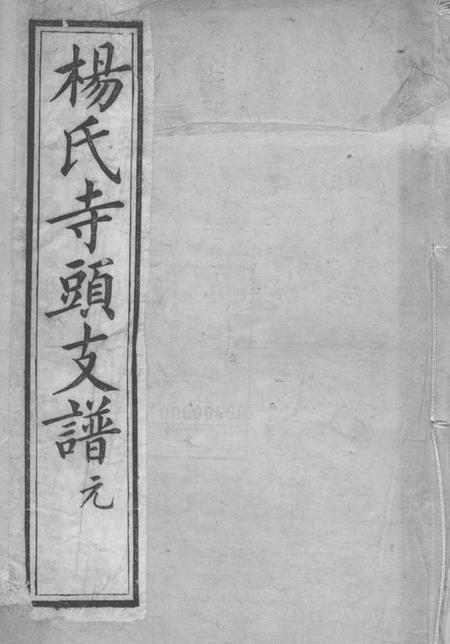 楊氏寺頭支譜元